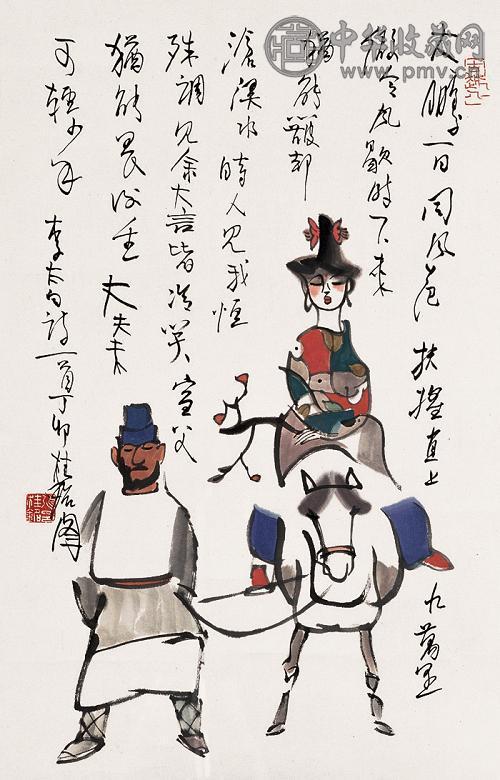 中华收藏网
www.pmv.cn
大鵬一日同风起扶摇直上九萬里
假令风歇时下来
猶能簸却
滄溟水時人见我恒
殊調见余大言皆冷笑宣父
猶能畏后生丈夫未
可輕少年
李太白诗一首丁卯桂铭